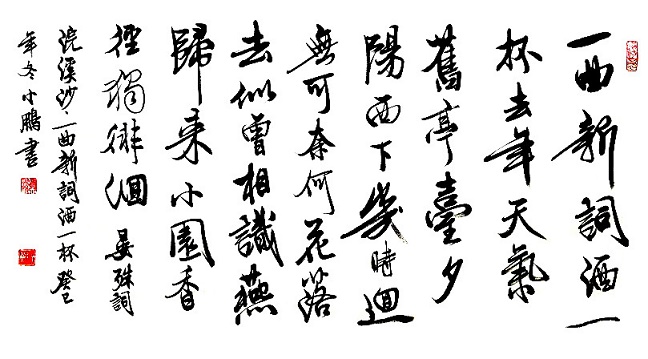 一曲新詞酒一
杯去年天氣
舊亭臺夕
陽西下幾時迴
無可奈何花落
去似曾相識燕
歸来小園香
徑獨徘徊 晏殊詞
浣溪沙·一曲新詞酒一杯 癸巳
年冬 小鵬書